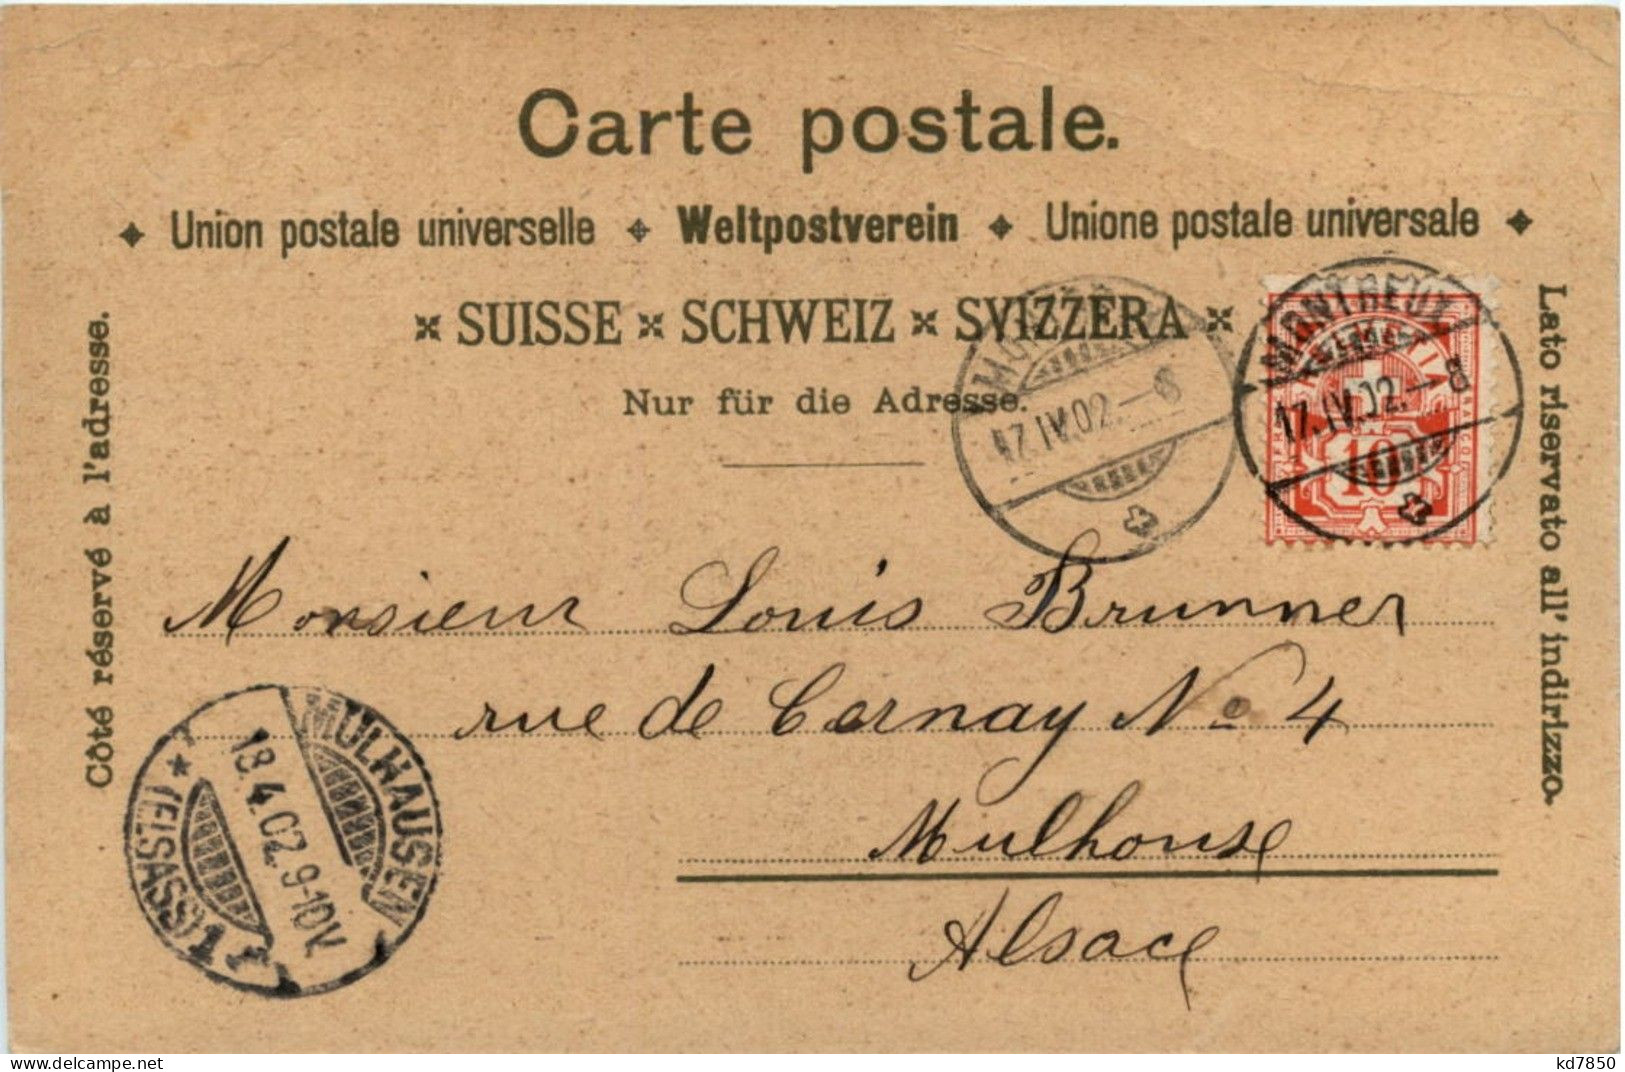 Carte postale.
Union postale universelle Weltpostverein Unione postale universale
SUISSE SCHWEIZ SVIZZERA
Nur für die Adresse.
Côté réservé à l'adresse.
Lato riservato all' indirizzo.
MONTREUX
17.IV.02.-8
17.IV.02.-8
10
Monsieur Louis Brunner
rue de Cernay No 4
Mulhouse
Alsace
MÜLHAUSEN
18.4.02.9-10V.
(ELSASS) 1
delcampe.net
kd7850